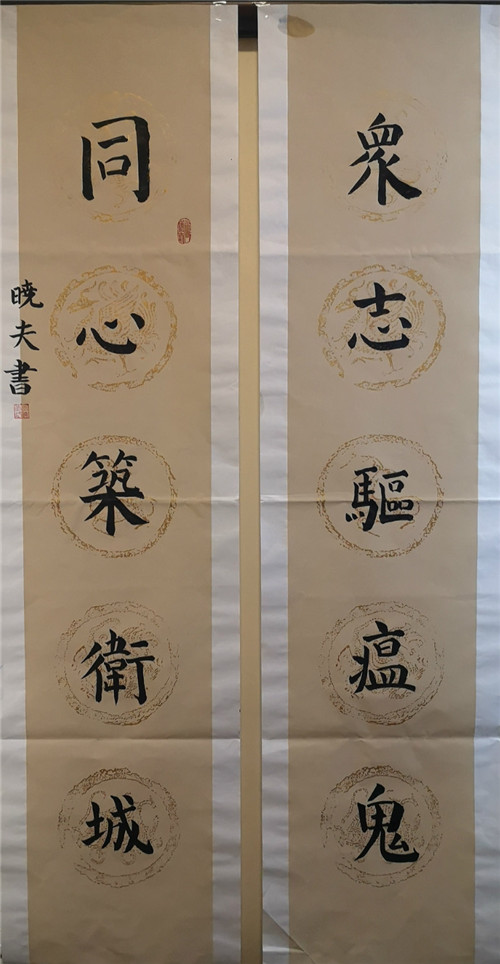 眾志驅瘟鬼
同心築衛城
曉夫書